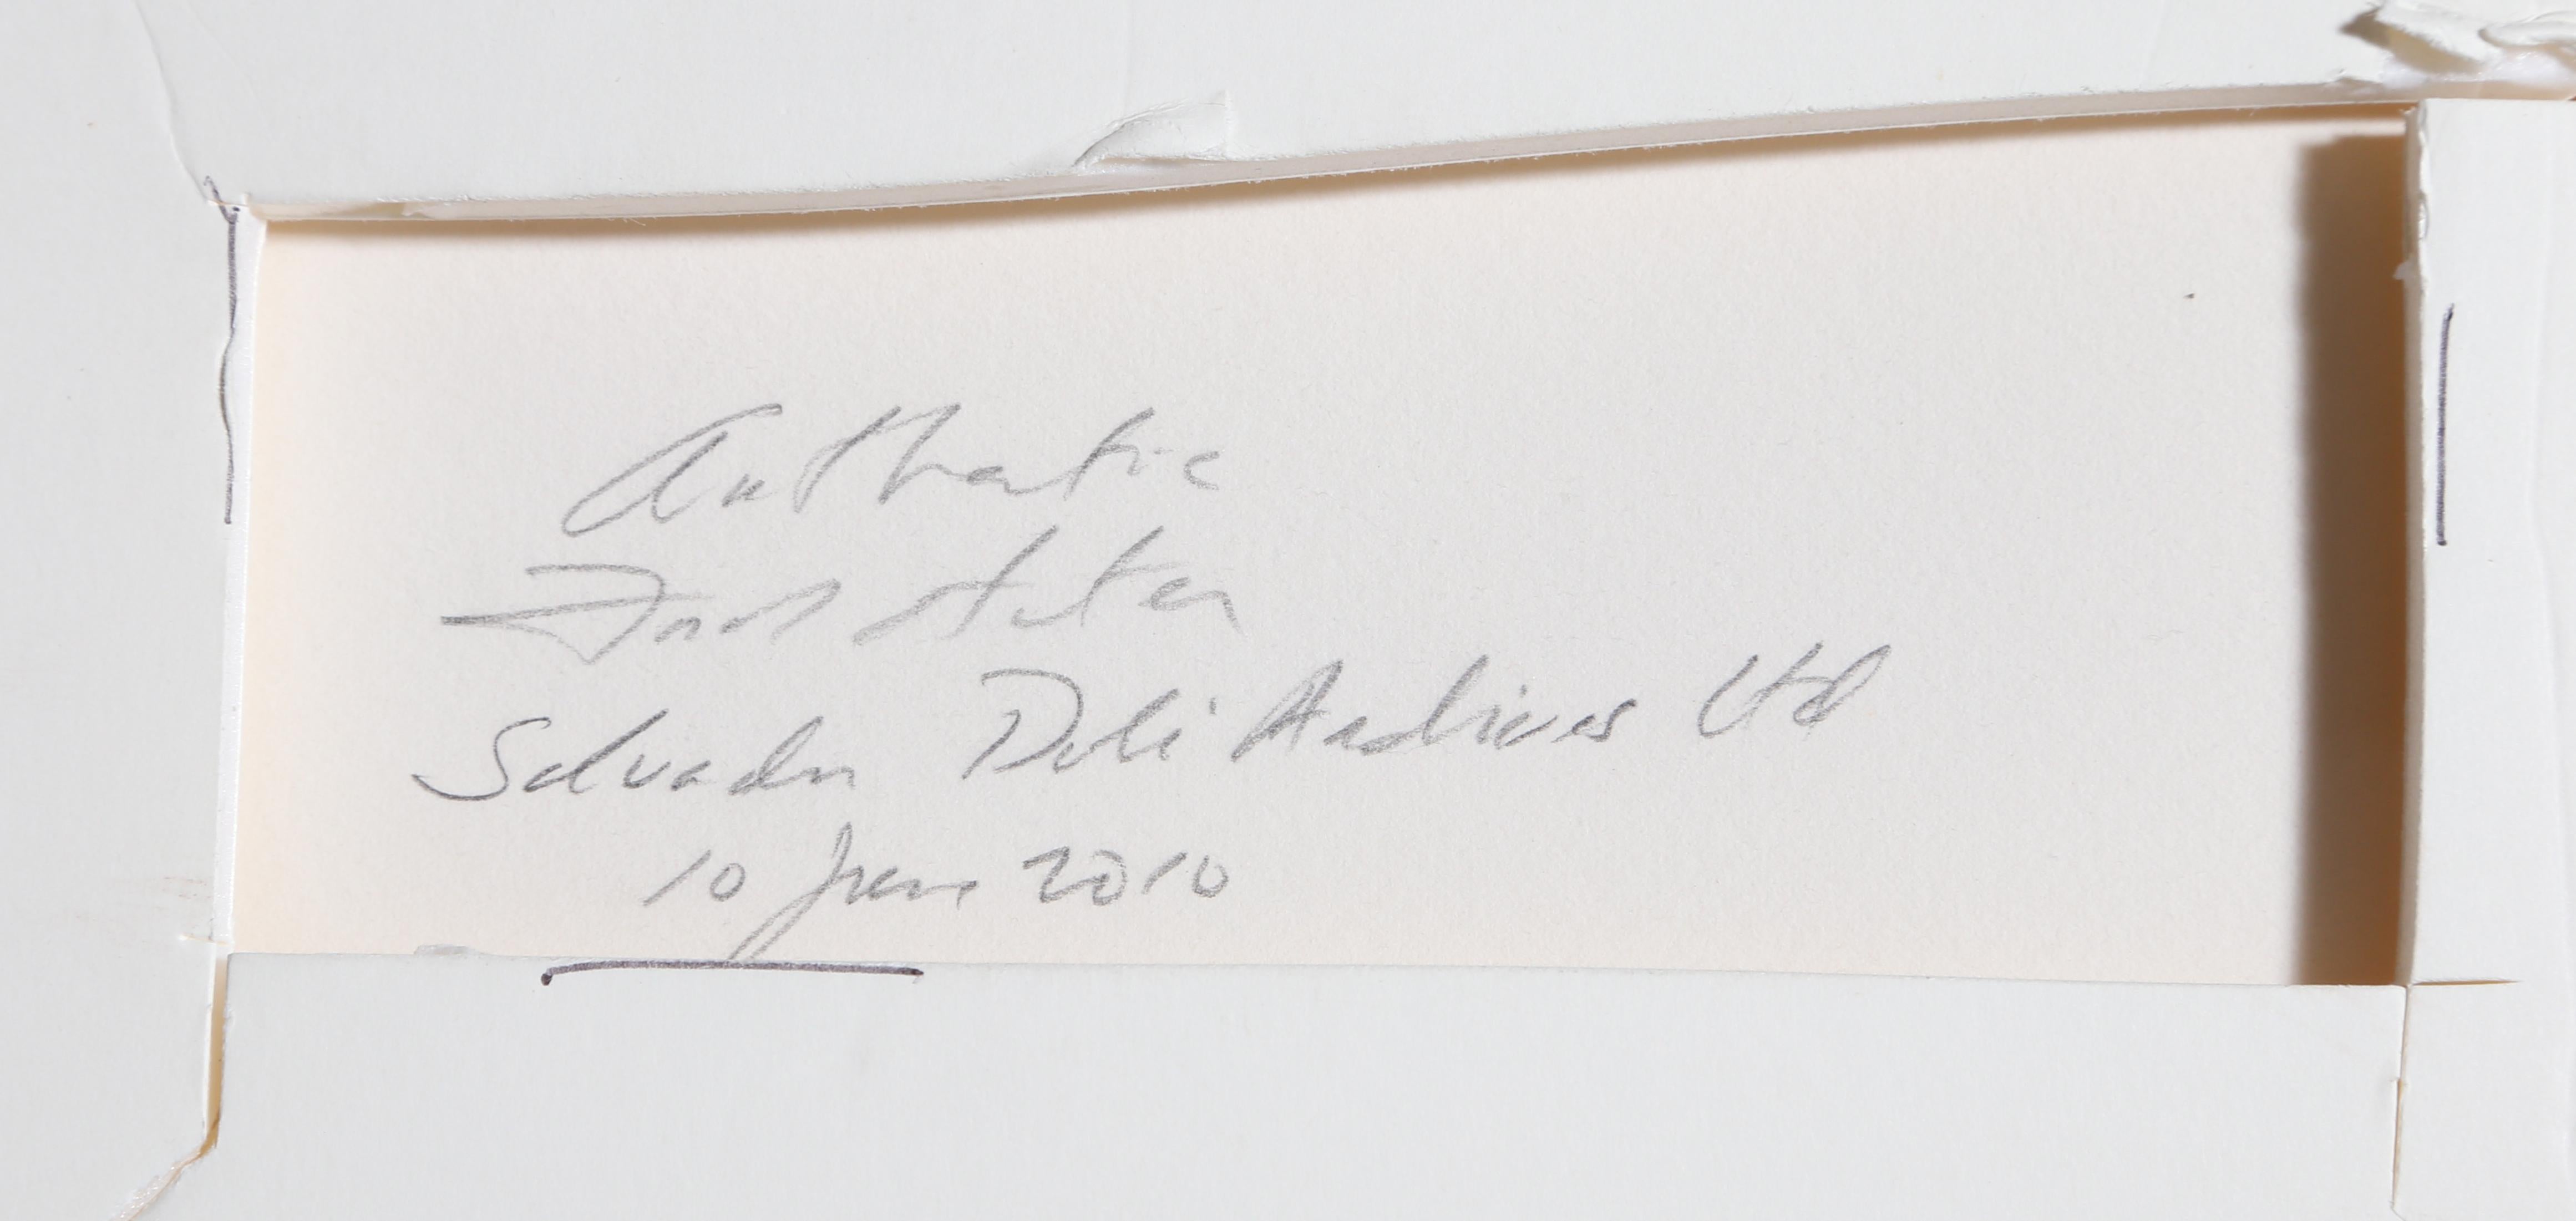 Authentic
Frank Hunter
Salvador Dali Archives Ltd
10 June 2010